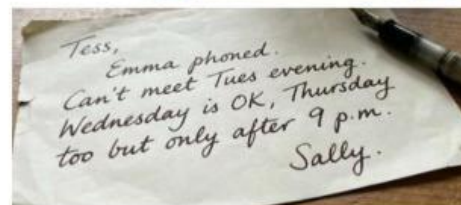 Tess,
Emma phoned.
Can't meet Tues evening.
Wednesday is OK, Thursday
too but only after 9 p.m.
Sally.